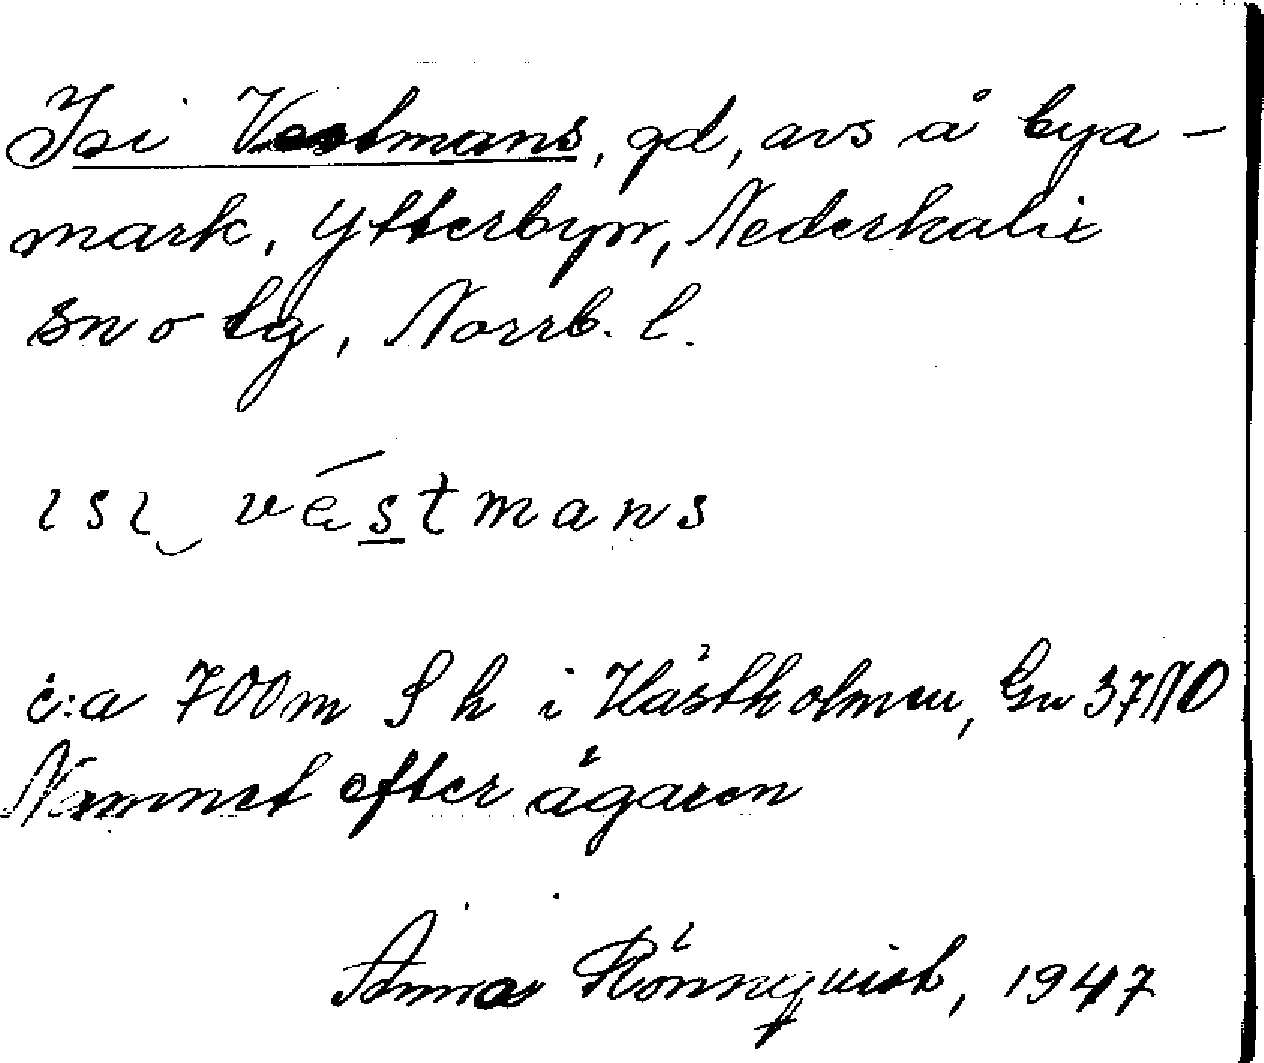 Isi Vestmans, gd, avs å bya-
mark, Ytterbyn, Nederkalix
sn o tg, Norrb. l.
ɩsɩ vést mans
c:a 700m S k i Hästholmen, Gn 37110
Namnet efter ägaren
Anna Rönnqvist, 1947